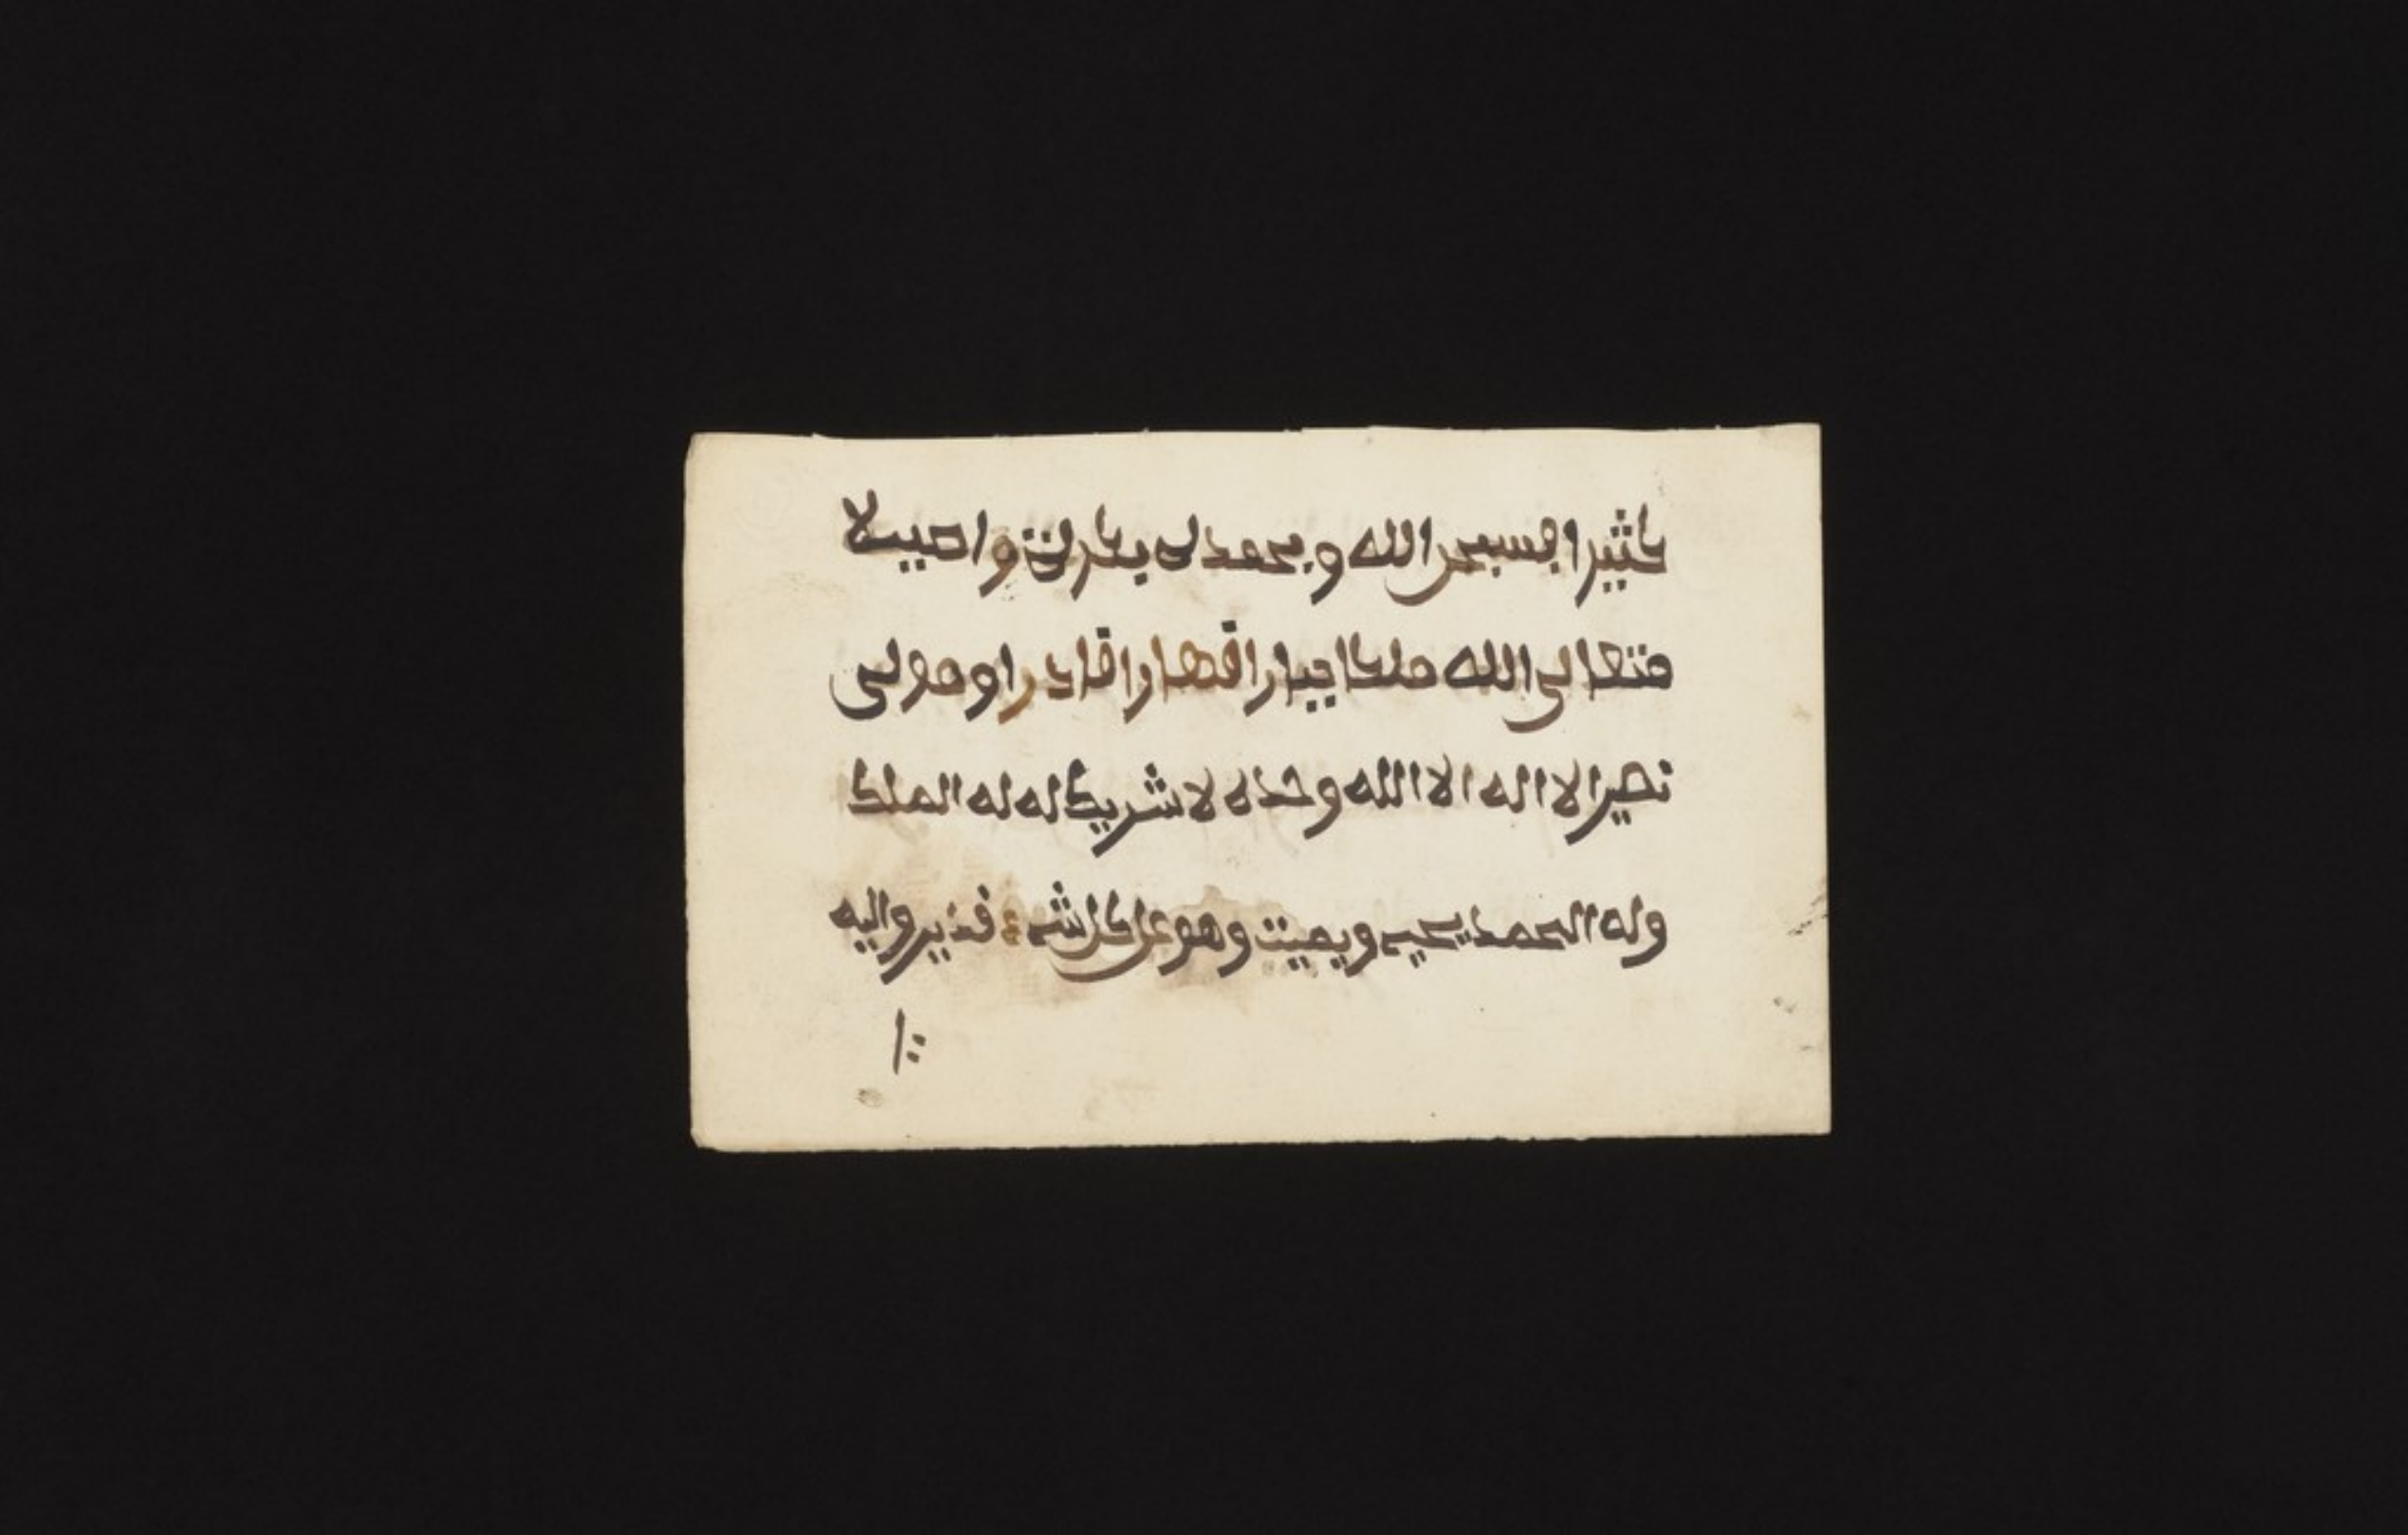 كثيرا فسبحن الله وبحمده بكرة واصيلا
فتعالى الله ملكا جبارا قهارا قادرا ومولى
نصيرا لا اله الا الله وحده لا شريك له له الملك
وله الحمد يحيى ويميت وهو على كل شىء قدير واليه